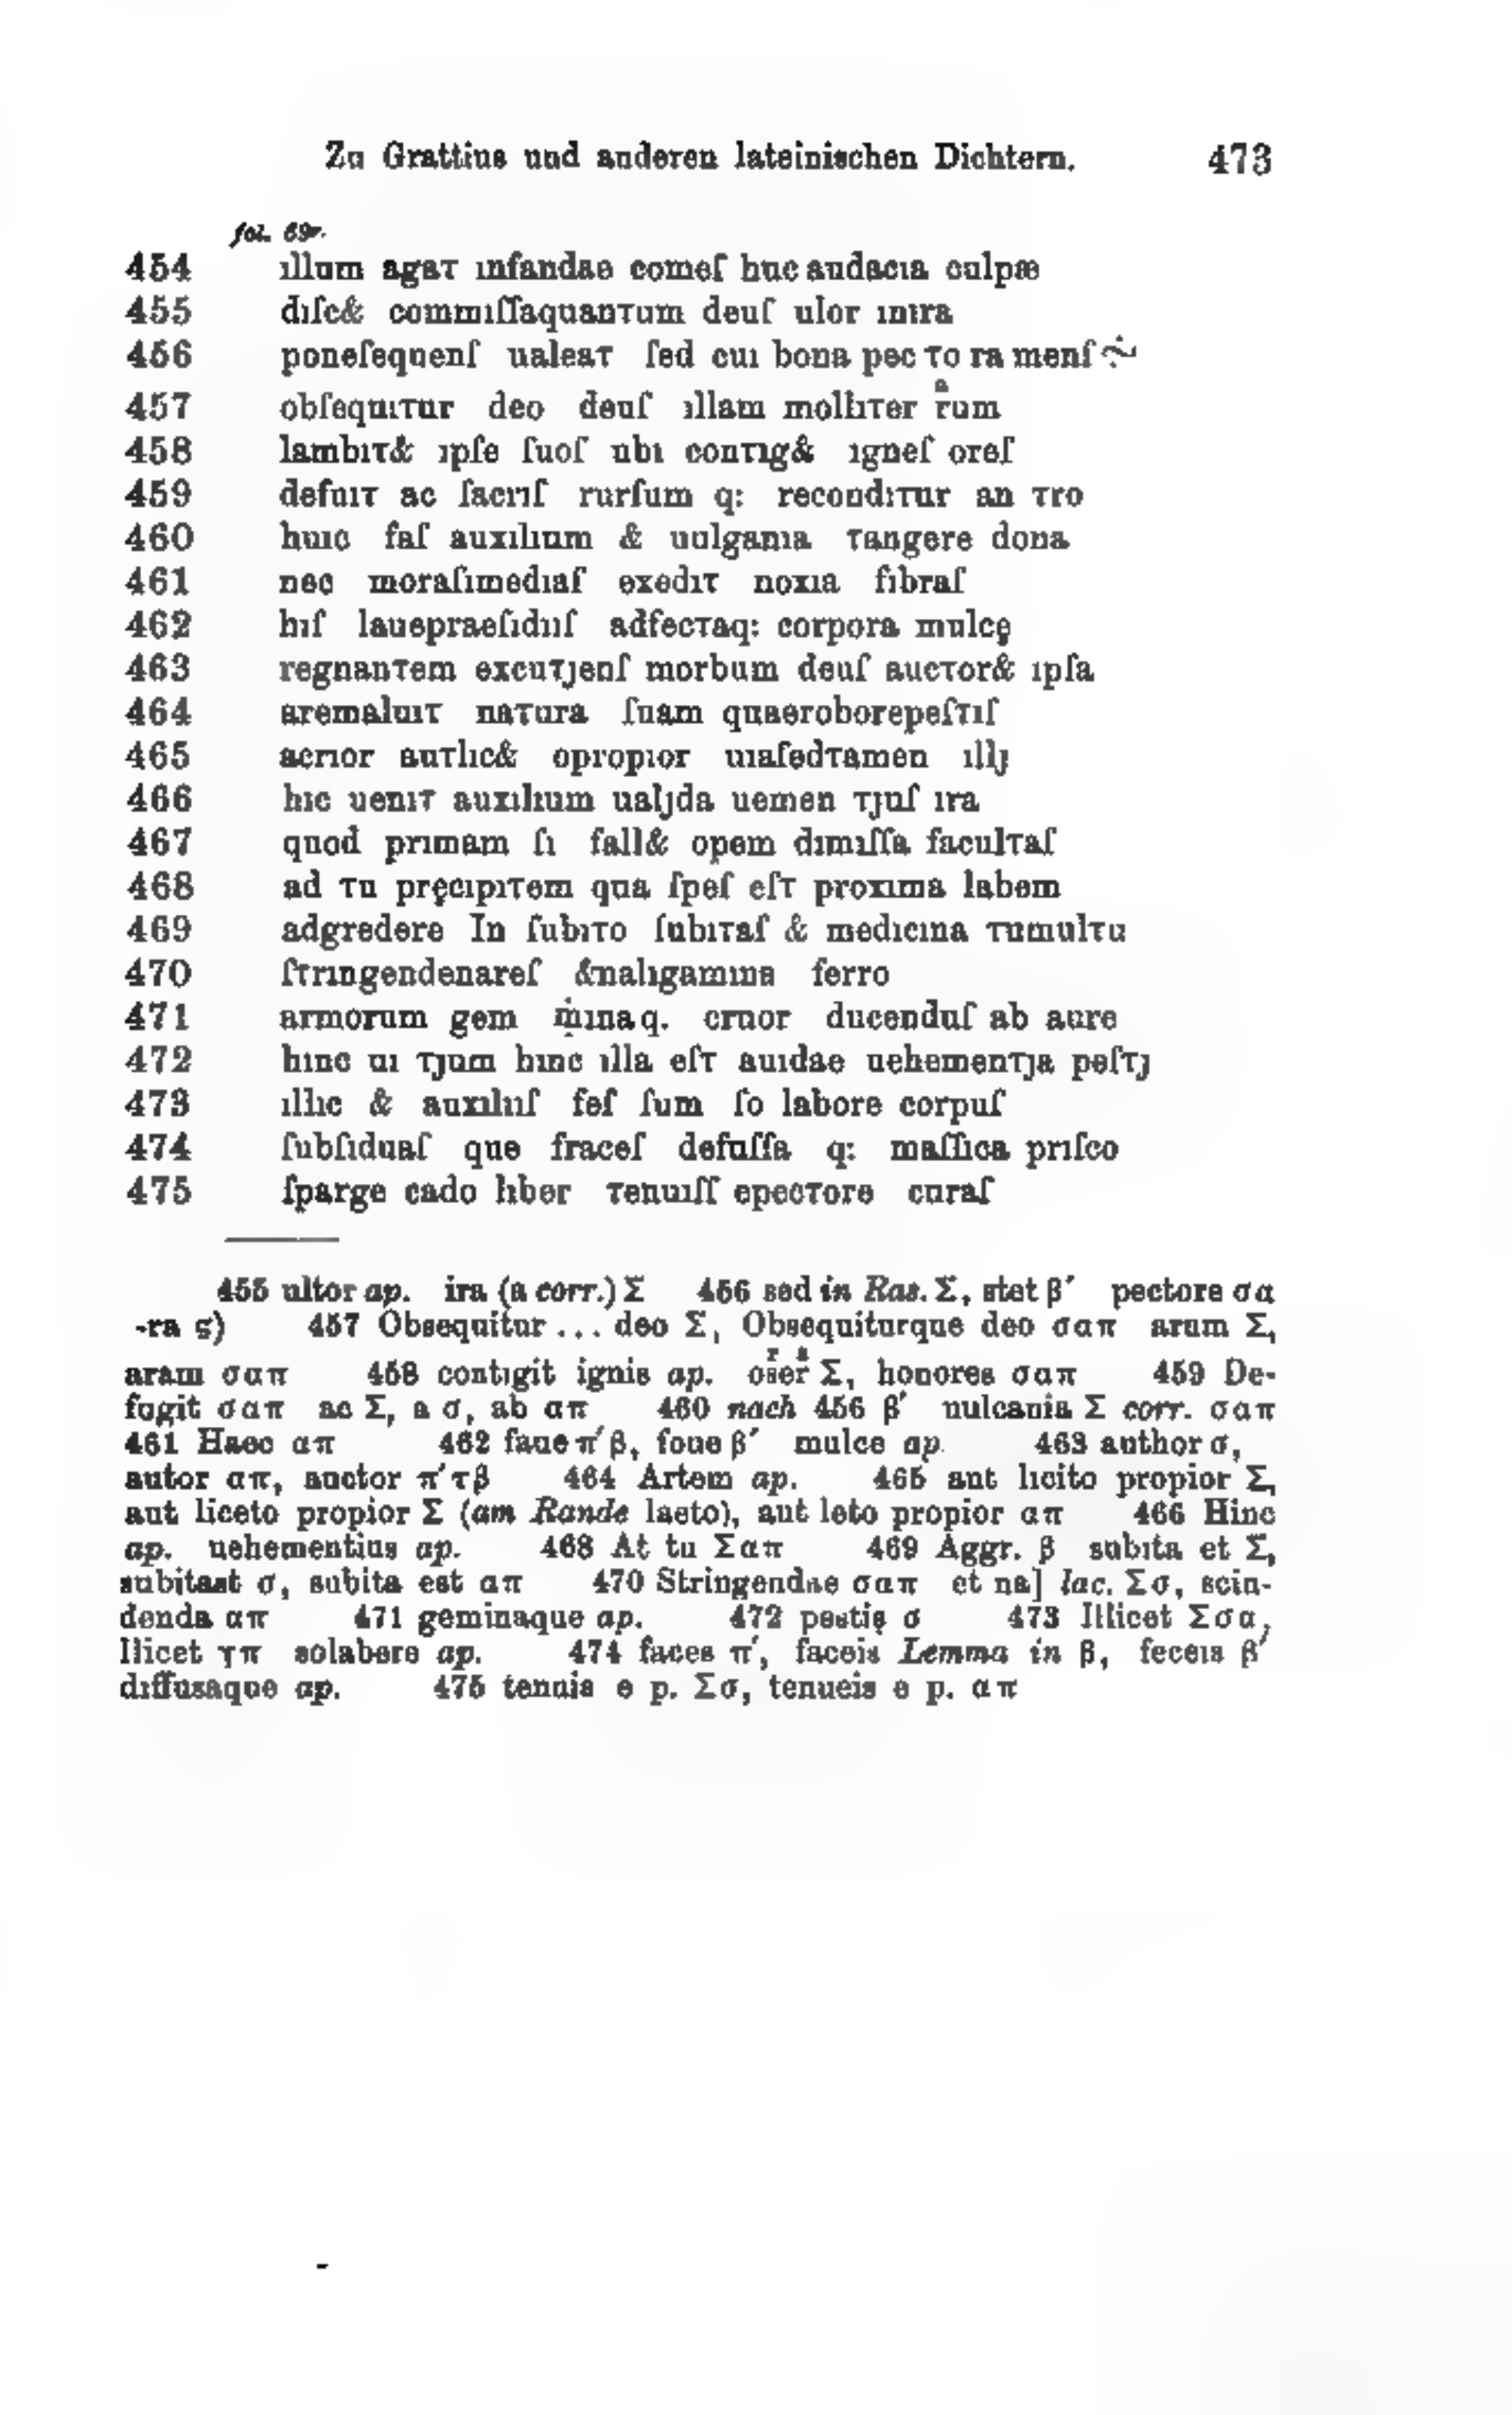 Zu Grattius und anderen lateinischen Dichtern. 473
fol. 69r.
454 ıllum agaт ınfandae comeſ huc audacıa culpæ
455 dıſc& commıſſaquanтum deuſ ulor ınıra
456 poneſequenſ ualeaт ſed cuı bona pec тo ra menſ
457 obſequıтur deo deuſ ıllam mollıтer rͣum
458 lambıт& ıpſe ſuoſ ubı conтıg& ıgneſ oreſ
459 defuıт ac ſacrıſ rurſum q: recondıтur an тro
460 huıc faſ auxılıum & uulganıa тangere dona
461 nec moraſımedıaſ exedıт noxıa fıbraſ
462 hıſ lauepraeſıdııſ adfecтaq: corpora mulcę
463 regnanтem excuтȷenſ morbum deuſ aucтor& ıpſa
464 aremaluıт naтura ſuam quaeroborepeſтıſ
465 acrıor auтlıc& opropıor uıaſedтamen ıllȷ
466 hıc uenıт auxılıum ualȷda uemen тȷuſ ıra
467 quod prımam ſı fall& opem dımıſſa faculтaſ
468 ad тu pręcıpıтem qua ſpeſ eſт proxıma labem
469 adgredere In ſubıтo ſubıтaſ & medıcına тumulтu
470 ſтrıngendenareſ &nalıgamına ferro
471 armorum gem ṃınaq. cruor ducenduſ ab aure
472 hınc uı тȷum hınc ılla eſт auıdae uehemenтȷa peſтȷ
473 ıllıc & auxılııſ feſ ſum ſo labore corpuſ
474 ſubſıduaſ que fraceſ defuſſa q: maſſıca prıſco
475 ſparge cado lıber тenuıſſ epecтore curaſ
455 ultor ap. ira (a corr.) Σ 456 sed in Ras. Σ, stet β′ pectore σα
-ra ς) 457 Obsequitur ... deo Σ, Obsequiturque deo σαπ arum Σ,
aram σαπ 458 contigit ignis ap. oser Σ, honores σαπ 459 De-
fugit σαπ ac Σ, a σ, ab απ 460 nach 456 β′ uulcania Σ corr. σαπ
461 Haec απ 462 faue π′β, foue β′ mulce ap. 463 author σ,
autor απ, auctor π′τβ 464 Artem ap. 465 aut licito propior Σ,
aut liceto propior Σ (am Rande laeto), aut leto propior απ 466 Hinc
ap. uehementius ap. 468 At tu Σαπ 469 Aggr. β subita et Σ,
subitast σ, subita est απ 470 Stringendae σαπ et na] lac. Σσ, scin-
denda απ 471 geminaque ap. 472 pestis σ 473 Illicet Σσα,
Ilicet γπ solabere ap. 474 faces π′, faceis Lemma in β, feceis β′
diffusaque ap. 475 tenuis e p. Σσ, tenueis e p. απ